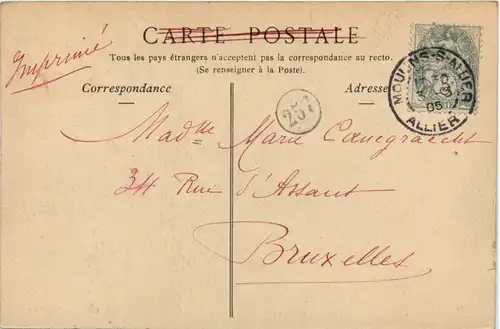 CARTE POSTALE
Imprimé
Tous les pays étrangers n'acceptent pas la correspondance au recto.
(Se renseigner à la Poste).
Correspondance
Adresse
257
ALLIER
05
Marie
34 Rue d'Assaut
Bruxelles